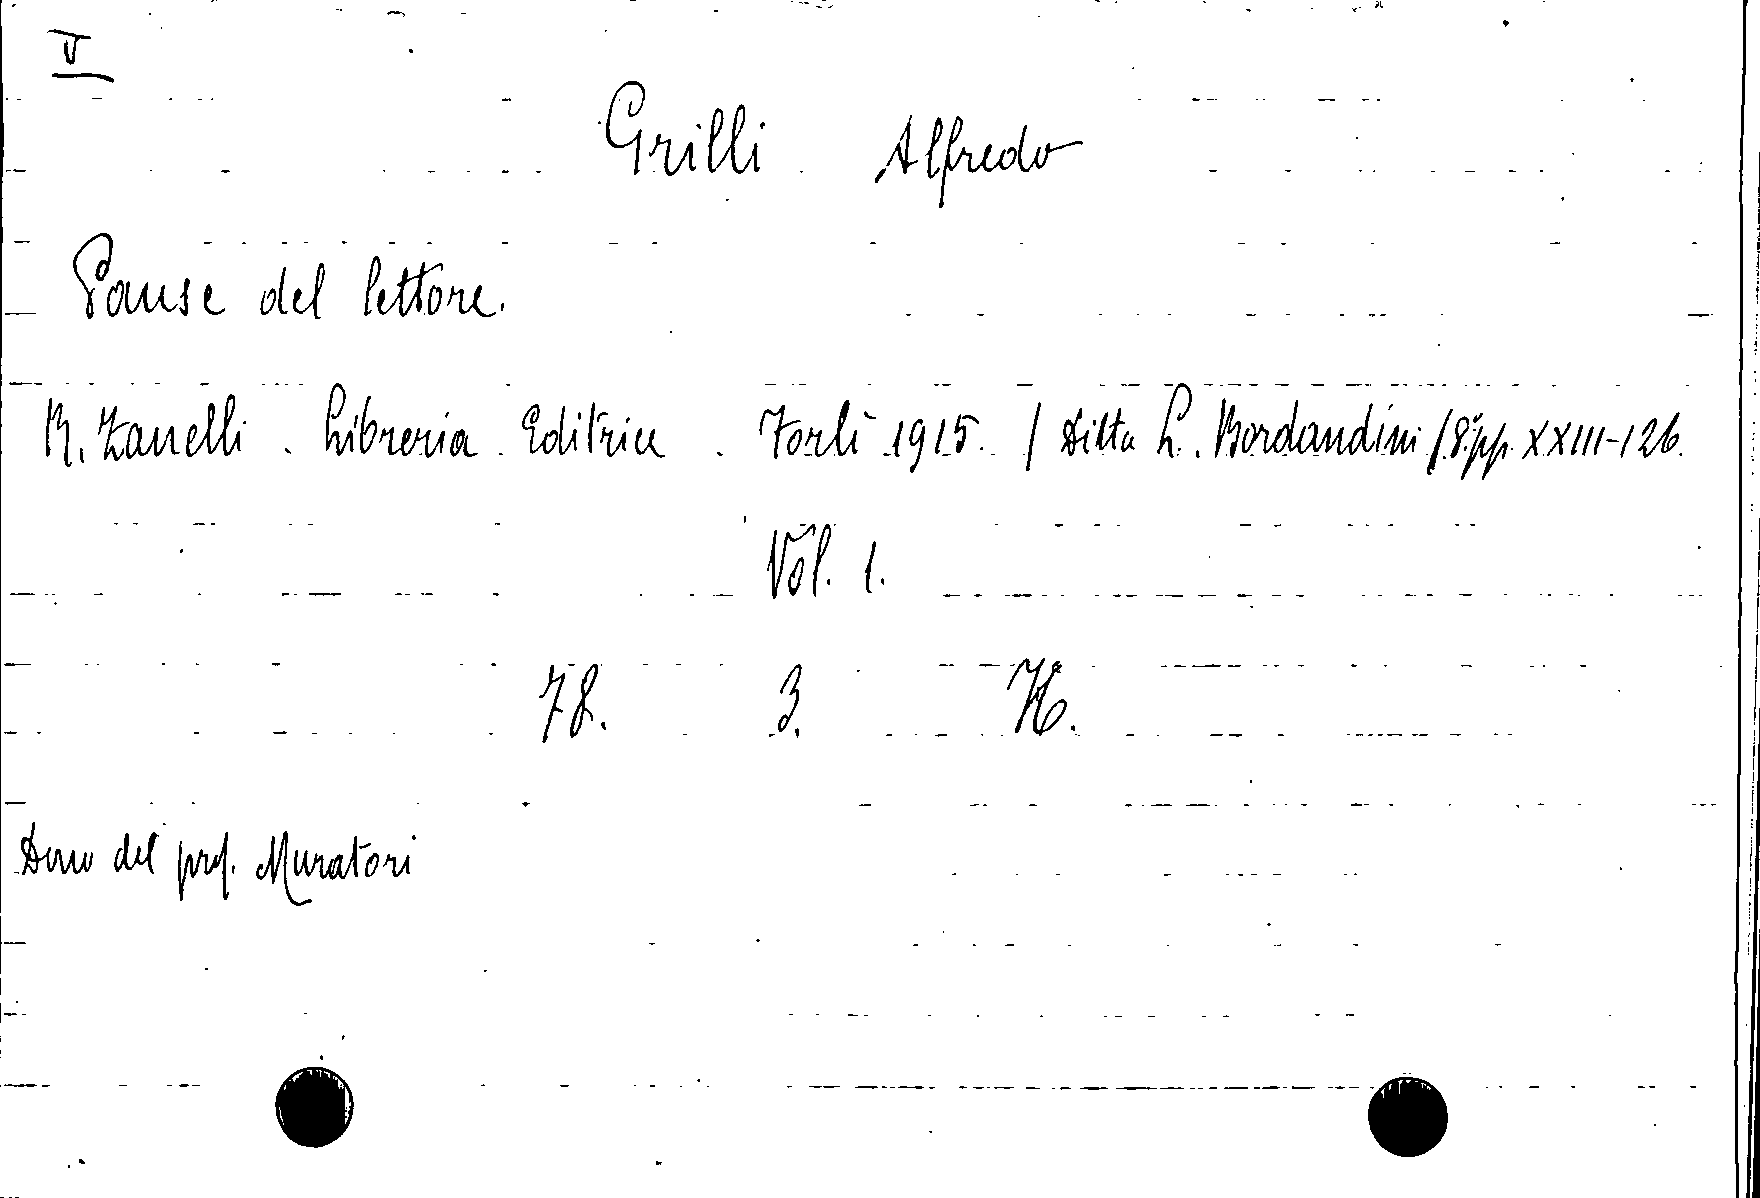 V
Grilli Alfredo
Pause del lettore.
R. Zanelli. Libreria Editrice. Forlì 1915. / Ditta L. Bordandini / 8° pp. XXIII-126.
Vol. 1.
78. 3.
Dono del prof. Muratori